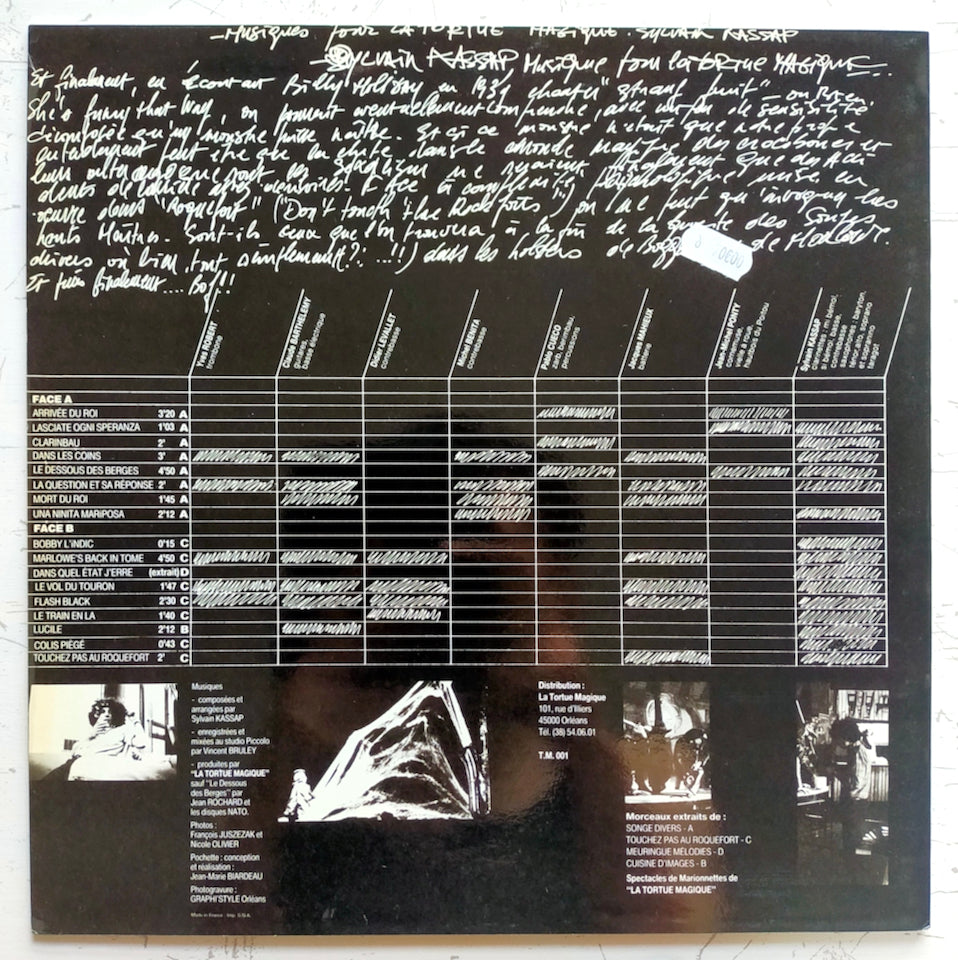 -MUSIQUES pour LA TORTUE MAGIQUE. SYLVAIN KASSAP
-SYLVAIN KASSAP Musique pour la TORTUE MAGIQUE...
Et finalement, en écoutant Billy Holiday en 1939 chanter
She's funny that Way, on pouvait eventuellement comprendre, avec un peu de sensibilité
qu'un monstre puisse naître. Et si ce monstre n'était que notre propre
peut être que la chute dans le monde magique des
leur
dents de après memoires. Face à psychanalytique mise en
œuvre dans "Roquefort" ("Don't touch the Rockforts") on ne peut qu'invoquer les
hauts Maîtres. Sont-ils ceux que l'on trouvera à la fin de la quête des Songes
divers où bien tout simplement?: ...!!) dans les holsters de de Marlowe.
Et puis finalement.... Bof!!
Yves ROBERT
trombone
Claude BARTHELEMY
guitares,
basse électrique
Didier LEVALLET
contrebasse
Michel BENITA
contrebasse
Pablo CUECO
zarb, berimbau,
percussions
Jacques MAHIEUX
batterie
Jean-Michel PONTY
vielle à roue,
Sylvain KASSAP
clarinettes: mi bémol,
si bémol, basse,
contrebasse
saxophones: baryton,
ténor, alto, soprano
et sopranino
FACE A
ARRIVÉE DU ROI 3'20 A
LASCIATE OGNI SPERANZA 1'03 A
CLARINBAU 2' A
DANS LES COINS 3' A
LE DESSOUS DES BERGES 4'50 A
LA QUESTION ET SA RÉPONSE 2' A
MORT DU ROI 1'45 A
UNA NINITA MARIPOSA 2'12 A
FACE B
BOBBY L'INDIC 0'15 C
MARLOWE'S BACK IN TOME 4'50 C
DANS QUEL ÉTAT J'ERRE (extrait) D
LE VOL DU TOURON 1'47 C
FLASH BLACK 2'30 C
LE TRAIN EN LA 1'40 C
LUCILE 2'12 B
COLIS PIÉGÉ 0'43 C
TOUCHEZ PAS AU ROQUEFORT 2' C
Musiques
- composées et
arrangées par
Sylvain KASSAP
- enregistrées et
mixées au studio Piccolo
par Vincent BRULEY
- produites par
"LA TORTUE MAGIQUE"
sauf "Le Dessous
des Berges" par
Jean ROCHARD et
les disques NATO.
Photos :
François JUSZEZAK et
Nicole OLIVIER
Pochette : conception
et réalisation :
Jean-Marie BIARDEAU
Photogravure :
GRAPHI'STYLE Orléans
Made in France - Imp. S.G.A.
Distribution :
La Tortue Magique
101, rue d'Illiers
45000 Orléans
Tél. (38) 54.06.01
T.M. 001
Morceaux extraits de :
SONGE DIVERS - A
TOUCHEZ PAS AU ROQUEFORT - C
MEURINGUE MÉLODIES - D
CUISINE D'IMAGES - B
Spectacles de Marionnettes de
"LA TORTUE MAGIQUE"